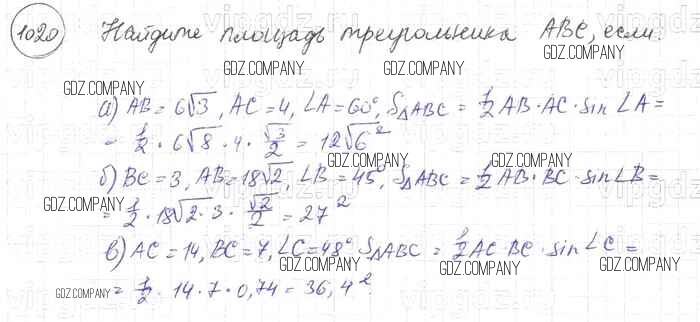 1020 Найдите площадь треугольника ABC, если:
GDZ.COMPANY GDZ.COMPANY GDZ.COMPANY
а) AB = 6√3, AC = 4, ∠A = 60°, S△ABC = 1/2 AB · AC · sin ∠A =
= 1/2 · 6√8 · 4 · √3/2 = 12√6²
GDZ.COMPANY GDZ.COMPANY GDZ.COMPANY
б) BC = 3, AB = 18√2, ∠B = 45°, S△ABC = 1/2 AB · BC · sin ∠B =
= 1/2 · 18√2 · 3 · √2/2 = 27²
GDZ.COMPANY GDZ.COMPANY GDZ.COMPANY
в) AC = 14, BC = 7, ∠C = 48° S△ABC = 1/2 AC · BC · sin ∠C =
GDZ.COMPANY GDZ.COMPANY GDZ.COMPANY
= 1/2 · 14 · 7 · 0,74 = 36,4².